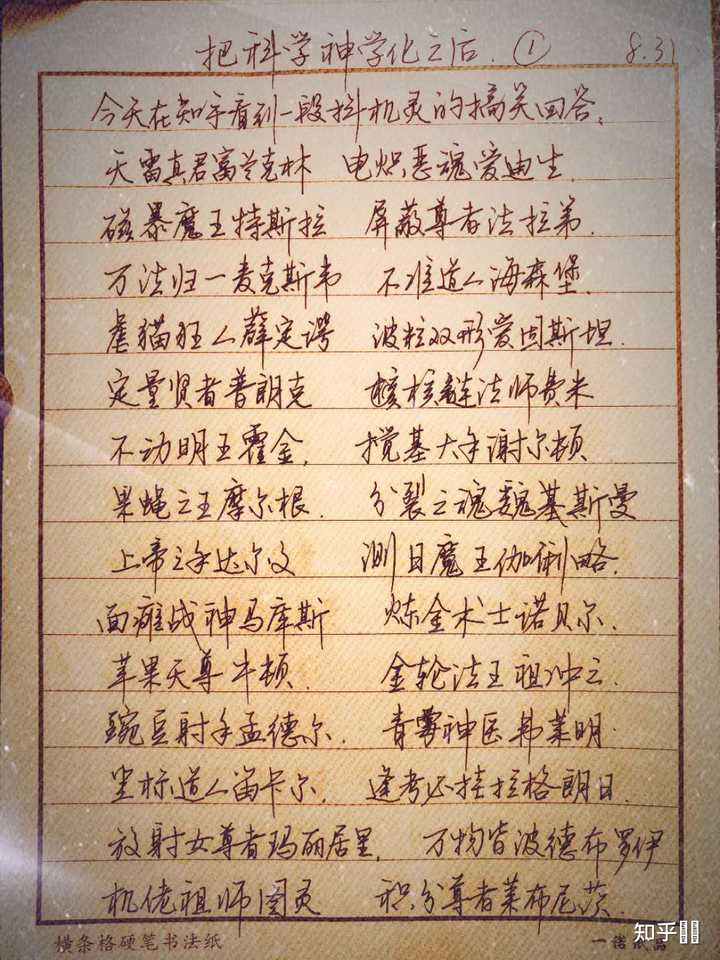 把科学神学化之后. ① 8.31
今天在知乎看到一段抖机灵的搞笑回答:
天雷真君富兰克林 电炽恶魂爱迪生.
磁暴魔王特斯拉 屏蔽尊者法拉第.
万法归一麦克斯韦 不准道人海森堡.
虐猫狂人薛定谔 波粒双形爱因斯坦.
定量贤者普朗克 核链法师费米
不动明王霍金. 搅基大手谢尔顿.
果蝇之王摩尔根. 分裂之魂魏基斯曼
上帝之手达尔文 测日魔王伽俐略.
面瘫战神马库斯 炼金术士诺贝尔.
苹果天尊牛顿. 金轮法王祖冲之.
豌豆射手孟德尔. 青霉神医弗莱明.
坐标道人笛卡尔. 逢考必挂拉格朗日.
放射女尊者玛丽居里. 万物皆波德布罗伊
机佬祖师图灵 积分尊者莱布尼茨.
横条格硬笔书法纸
知乎